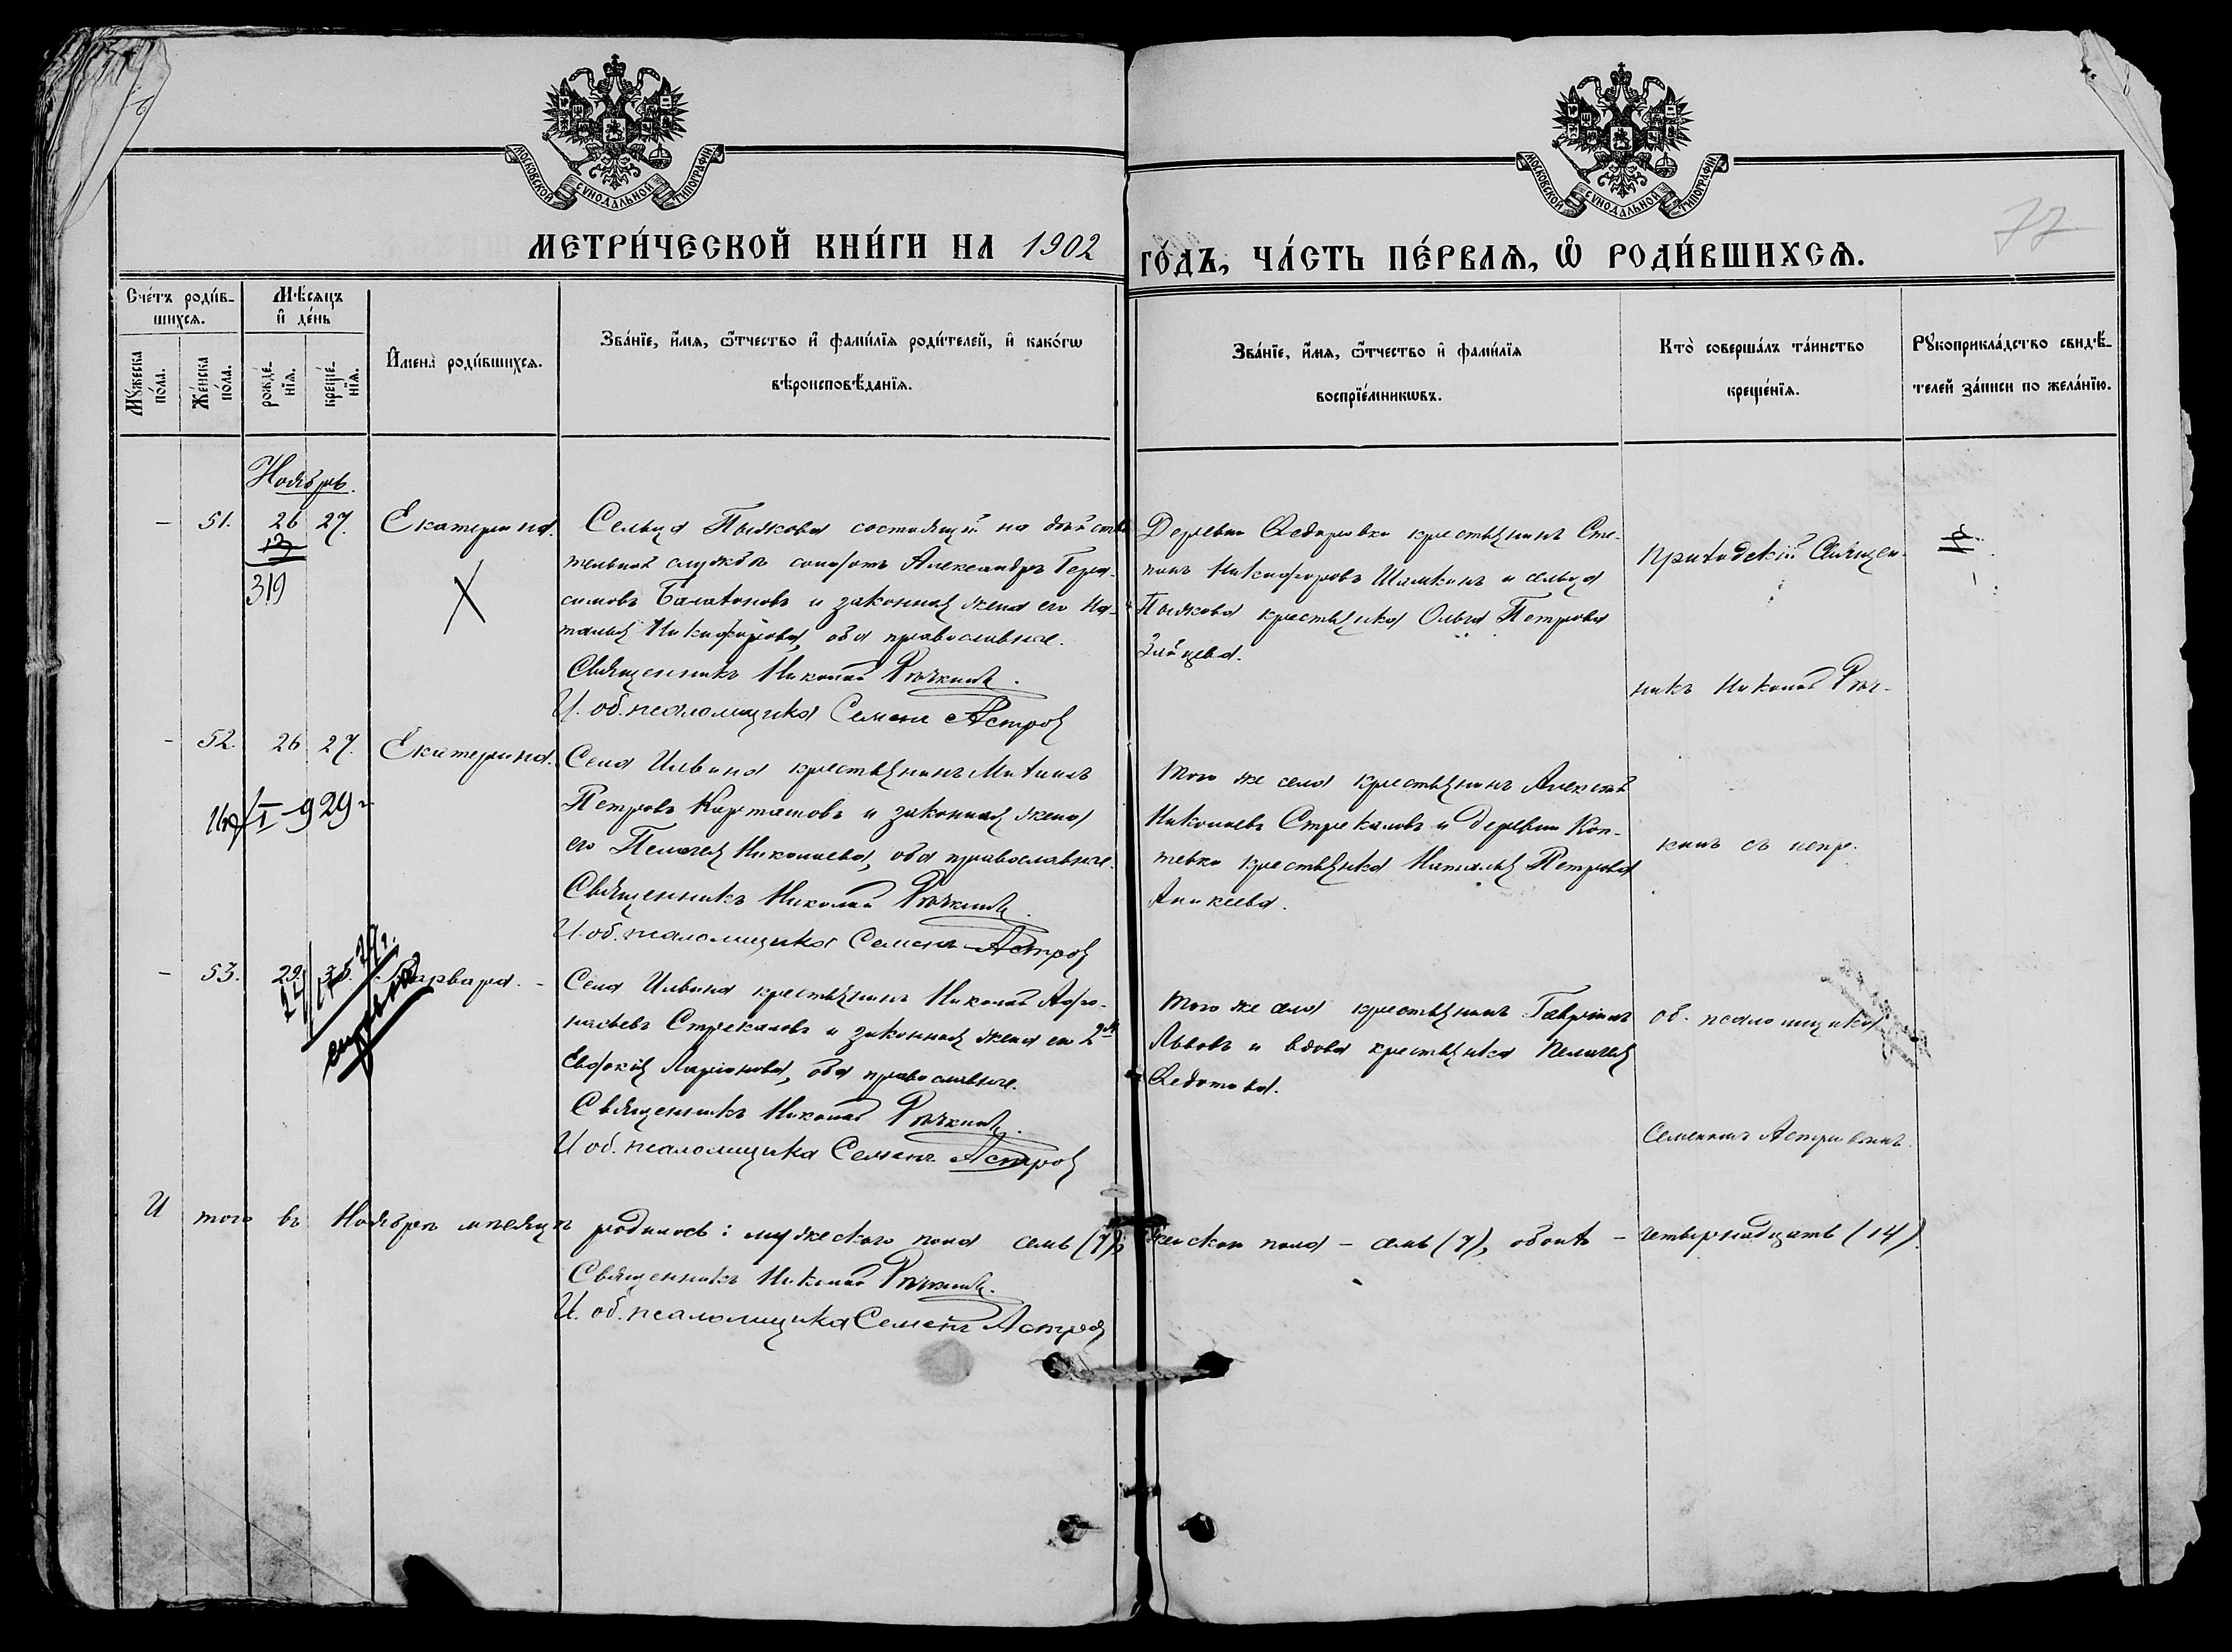 МОСКОВСКОЙ СѴНОДАЛЬНОЙ ТИПОГРАФІИ
МОСКОВСКОЙ СѴНОДАЛЬНОЙ ТИПОГРАФІИ
77
МЕТРИ́ЧЕСКОЙ КНИ́ГИ НА 1902 ГО́ДЪ, ЧА́СТЬ ПЕ́РВАѦ, Ѡ҆ РОДИ́ВШИХСѦ.
Сче́тъ роди́в-
шихсѧ.
Мꙋ́жеска по́ла.
Же́нска по́ла.
Мѣ́сѧцъ
и҆ де́нь
рожде́-
нїѧ.
креще́-
нїѧ.
И҆мена̀ роди́вшихсѧ.
Зва́нїе, и҆́мѧ, ѻ҆́тчество и҆ фами́лїѧ роди́телей, и҆ како́гѡ
вѣроисповѣ́данїѧ.
Зва́нїе, и҆́мѧ, ѻ҆́тчество и҆ фами́лїѧ
воспрїе́мникѡвъ.
Кто̀ соверша́лъ та́инство
креще́нїѧ.
Рꙋкоприкла́дство свидѣ́-
телей за́писи по жела́нїю.
Ноябрь.
- 51. 26 27. Екатерина.
319
Х
Сельца Пыжкова состоящiй на действи-
тельной службѣ солдатъ Александръ Гера-
симовъ и законная жена его На-
талья Никифорова, оба православные.
Священникъ Николай Рѣчкинъ.
И. об. псаломщика Семенъ Астровъ
Деревни Федоровки крестьянинъ Сте-
панъ Никифоровъ и сельца
Пыжкова крестьянка Ольга Петрова
Зайцева.
Приходскiй Священ-
никъ Николай Рѣч-
- 52. 26 27. Екатерина.
I-929 г
Села Ильина крестьянинъ Михаилъ
Петровъ Карташовъ и законная жена
его Пелагея Николаева, оба православные.
Священникъ Николай Рѣчкинъ.
И. об. псаломщика Семенъ Астровъ
Того же села крестьянинъ Алексѣй
Николаевъ Стрекаловъ и деревни Коп-
тевки крестьянка Наталья Петрова
Аникеева.
кинъ съ испр.
- 53. 29. Варвара. -
Села Ильина крестьянинъ Николай Афа-
насьевъ Стрекаловъ и законная жена его 2я
Евдокiя Ларiонова, оба православные.
Священникъ Николай Рѣчкинъ.
И. об. псаломщика Семенъ Астровъ
Того же села крестьянинъ Гаврiилъ
Львовъ и вдова крестьянка Пелагея
Федотова.
об. псаломщика
Семеномъ Астровымъ.
И того въ Ноябрѣ мѣсяцѣ родилось: мужескаго пола семь (7), женскаго пола - семь (7), обоихъ - четырнадцать (14).
Священникъ Николай Рѣчкинъ.
И. об. псаломщика Семенъ Астровъ